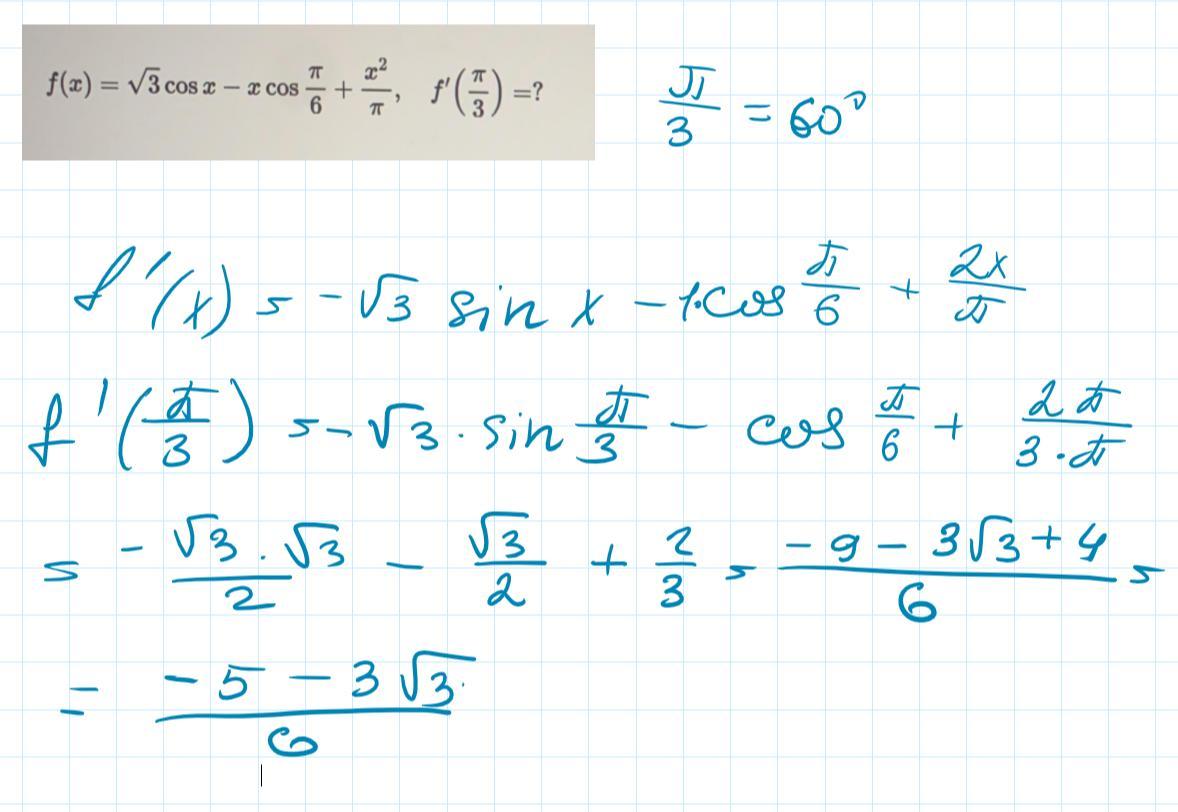 f(x) = √3 cos x − x cos π/6 + x²/π, f'(π/3) =?
π/3 = 60°
f'(x) = -√3 sin x − 1·cos π/6 + 2x/π
f'(π/3) = -√3 · sin π/3 − cos π/6 + 2π/3·π
= -√3·√3/2 − √3/2 + 2/3 = -9 − 3√3 + 4/6 =
= -5 − 3√3/6